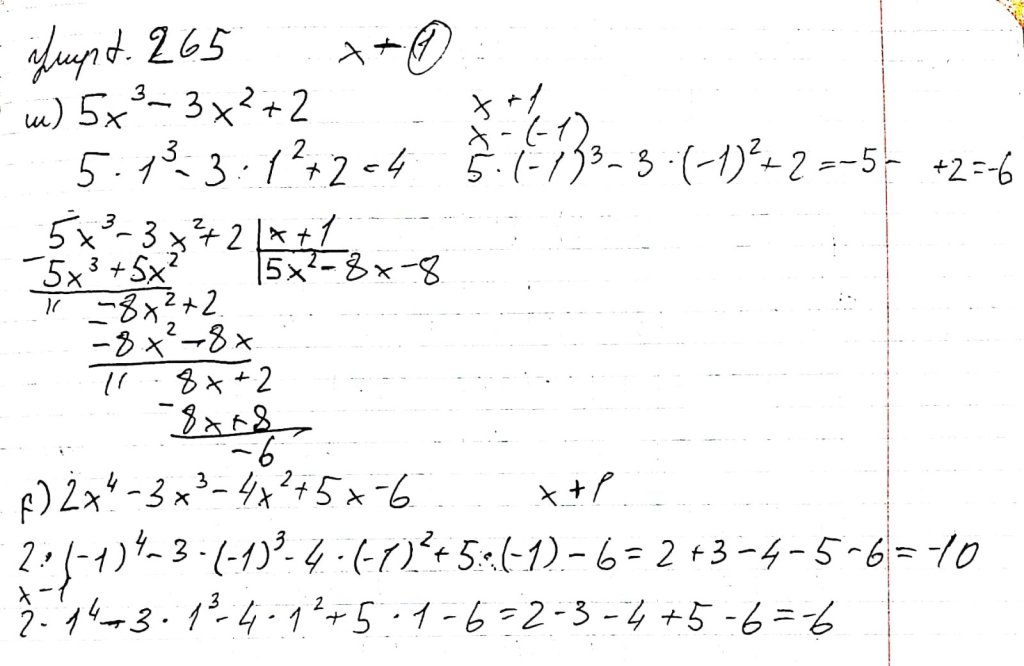 Упрд. 265 x + 1
ш) 5x³ - 3x² + 2
x + 1
x - (-1)
5 · 1³ - 3 · 1² + 2 = 4
5 · (-1)³ - 3 · (-1)² + 2 = -5 - +2 = -6
5x³ - 3x² + 2 | x + 1
- 5x³ + 5x² | 5x² - 8x - 8
" - 8x² + 2
- 8x² - 8x
" 8x + 2
- 8x + 8
-6
р) 2x⁴ - 3x³ - 4x² + 5x - 6 x + 1
2 · (-1)⁴ - 3 · (-1)³ - 4 · (-1)² + 5 · (-1) - 6 = 2 + 3 - 4 - 5 - 6 = -10
x - 1
2 · 1⁴ - 3 · 1³ - 4 · 1² + 5 · 1 - 6 = 2 - 3 - 4 + 5 - 6 = -6